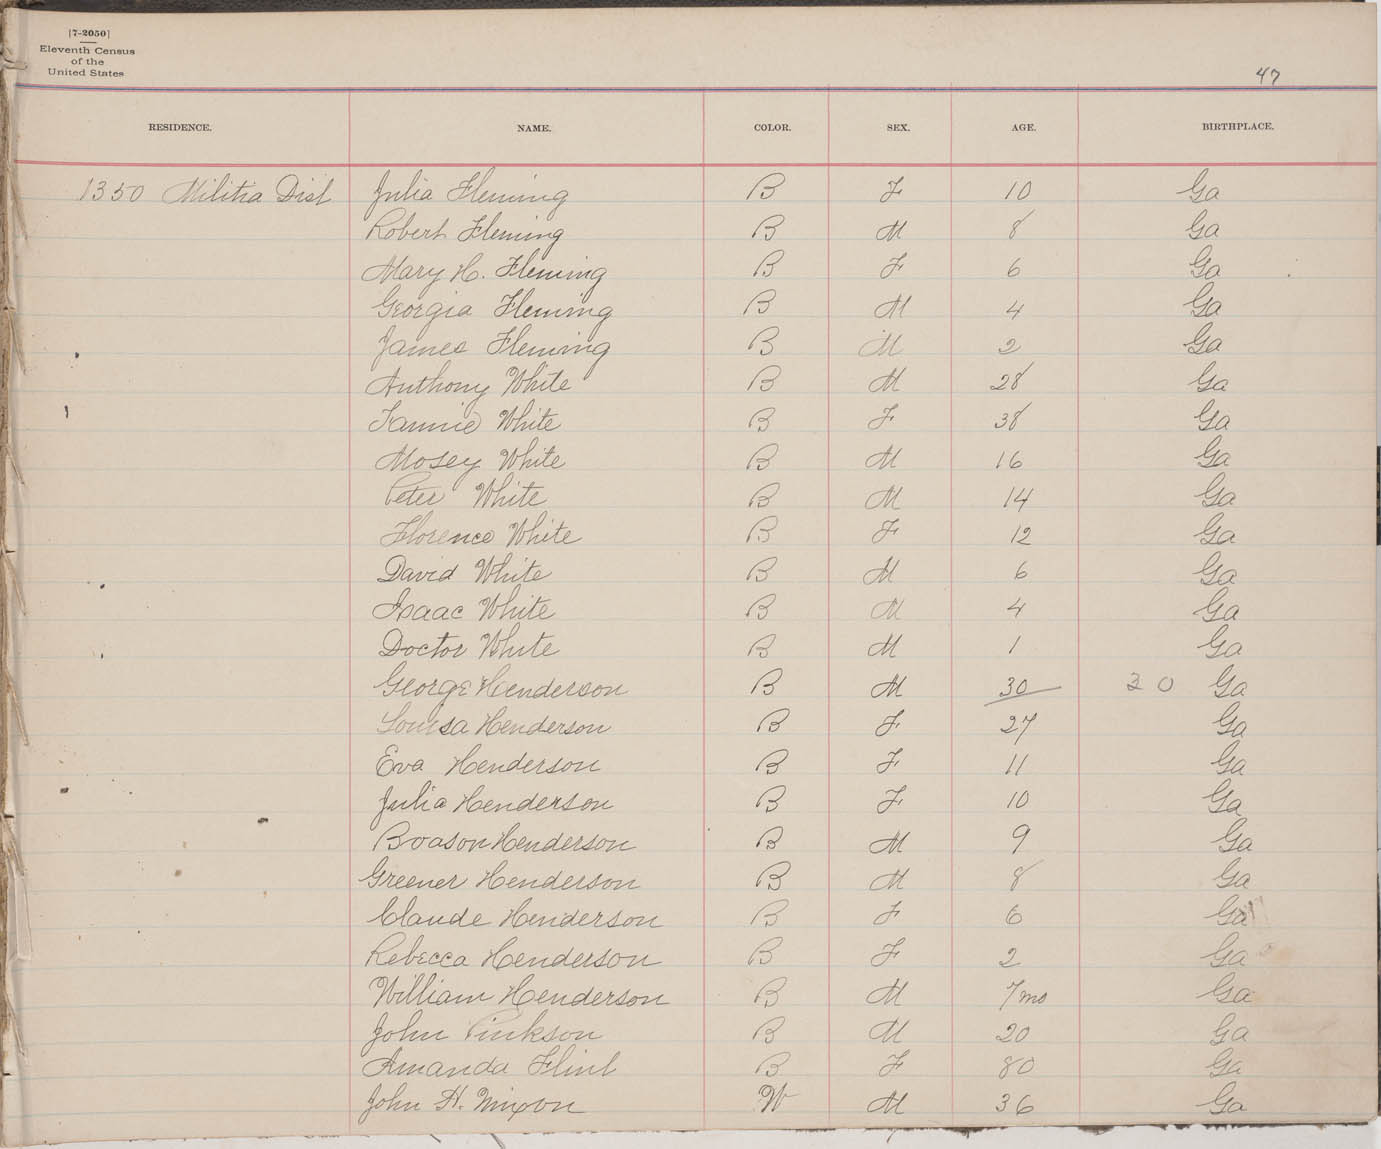 [7-2050]
Eleventh Census
of the
United States
47
RESIDENCE. NAME. COLOR. SEX. AGE. BIRTHPLACE.
1350 Militia Dist Julia Fleming B F 10 Ga
Robert Fleming B M 8 Ga
Mary H. Fleming B F 6 Ga
Georgia Fleming B M 4 Ga
James Fleming B M 2 Ga
Anthony White B M 28 Ga
Fannie White B F 38 Ga
Mosey White B M 16 Ga
Peter White B M 14 Ga
Florence White B F 12 Ga
David White B M 6 Ga
Isaac White B M 4 Ga
Doctor White B M 1 Ga
George Henderson B M 30 30 Ga
Louisa Henderson B F 27 Ga
Eva Henderson B F 11 Ga
Julia Henderson B F 10 Ga
Boason Henderson B M 9 Ga
Greener Henderson B M 8 Ga
Claude Henderson B F 6 Ga
Rebecca Henderson B F 2 Ga
William Henderson B M 7mo Ga
John Pinkson B M 20 Ga
Amanda Flint B F 80 Ga
John H. Nixon W M 36 Ga